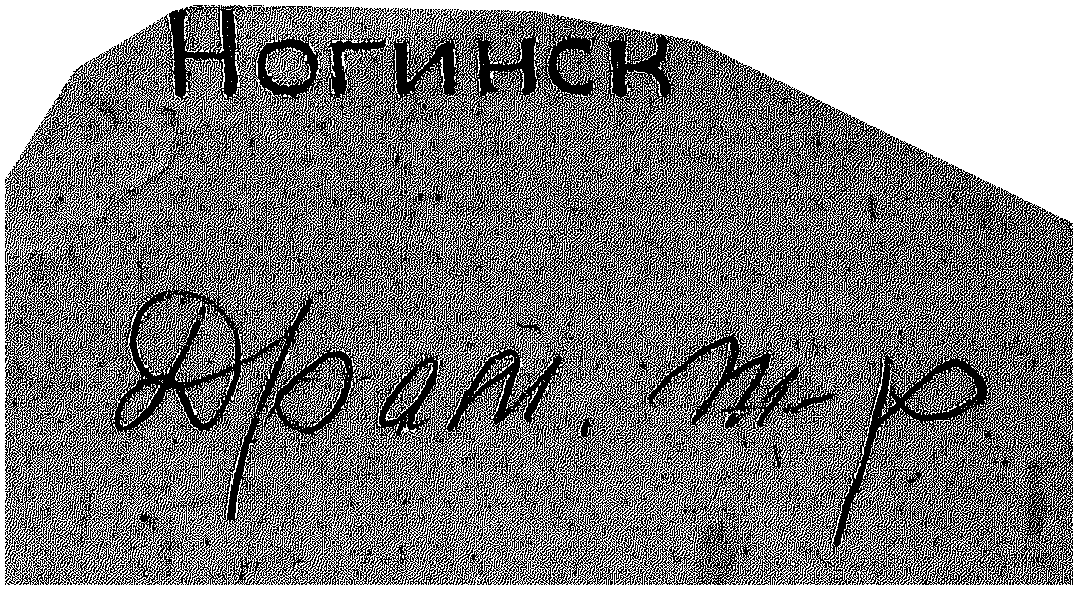 Ногинск
Драм. т-р